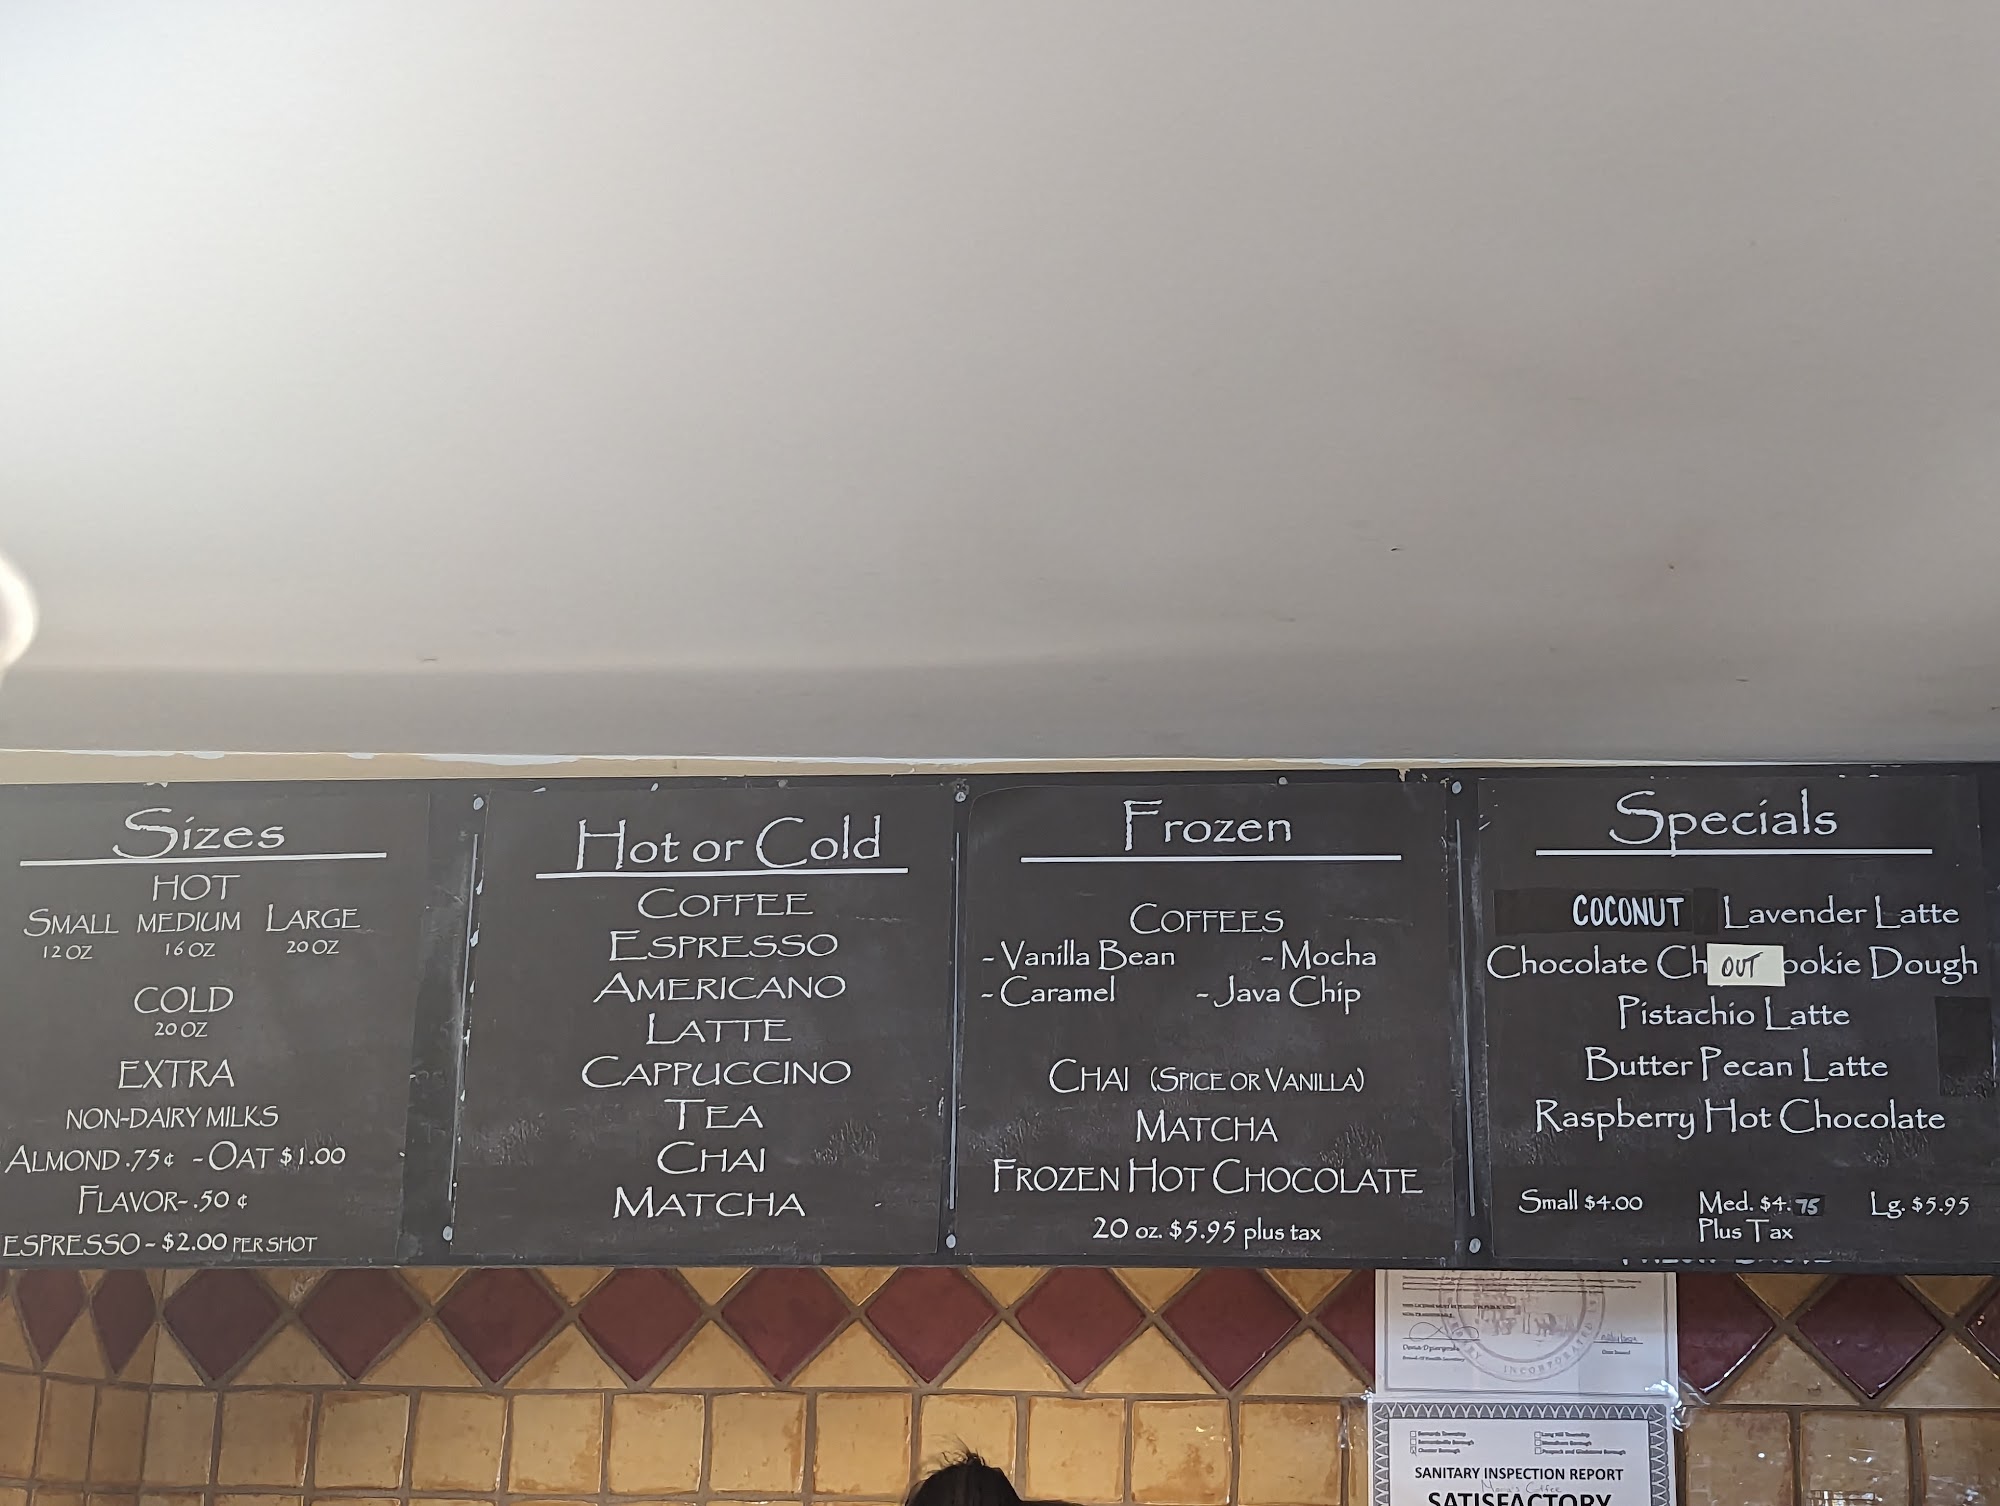 Sizes
HOT
SMALL MEDIUM LARGE
12 OZ 16 OZ 20 OZ
COLD
20 OZ
EXTRA
NON-DAIRY MILKS
ALMOND .75¢ - OAT $1.00
FLAVOR- .50 ¢
ESPRESSO - $2.00 PER SHOT
Hot or Cold
COFFEE
ESPRESSO
AMERICANO
LATTE
CAPPUCCINO
TEA
CHAI
MATCHA
Frozen
COFFEES
- Vanilla Bean - Mocha
- Caramel - Java Chip
CHAI (SPICE OR VANILLA)
MATCHA
FROZEN HOT CHOCOLATE
20 oz. $5.95 plus tax
Specials
COCONUT Lavender Latte
Chocolate Ch OUT ookie Dough
Pistachio Latte
Butter Pecan Latte
Raspberry Hot Chocolate
Small $4.00 Med. $4.75 Lg. $5.95
Plus Tax
INCORPORATED
SANITARY INSPECTION REPORT
SATISFACTORY